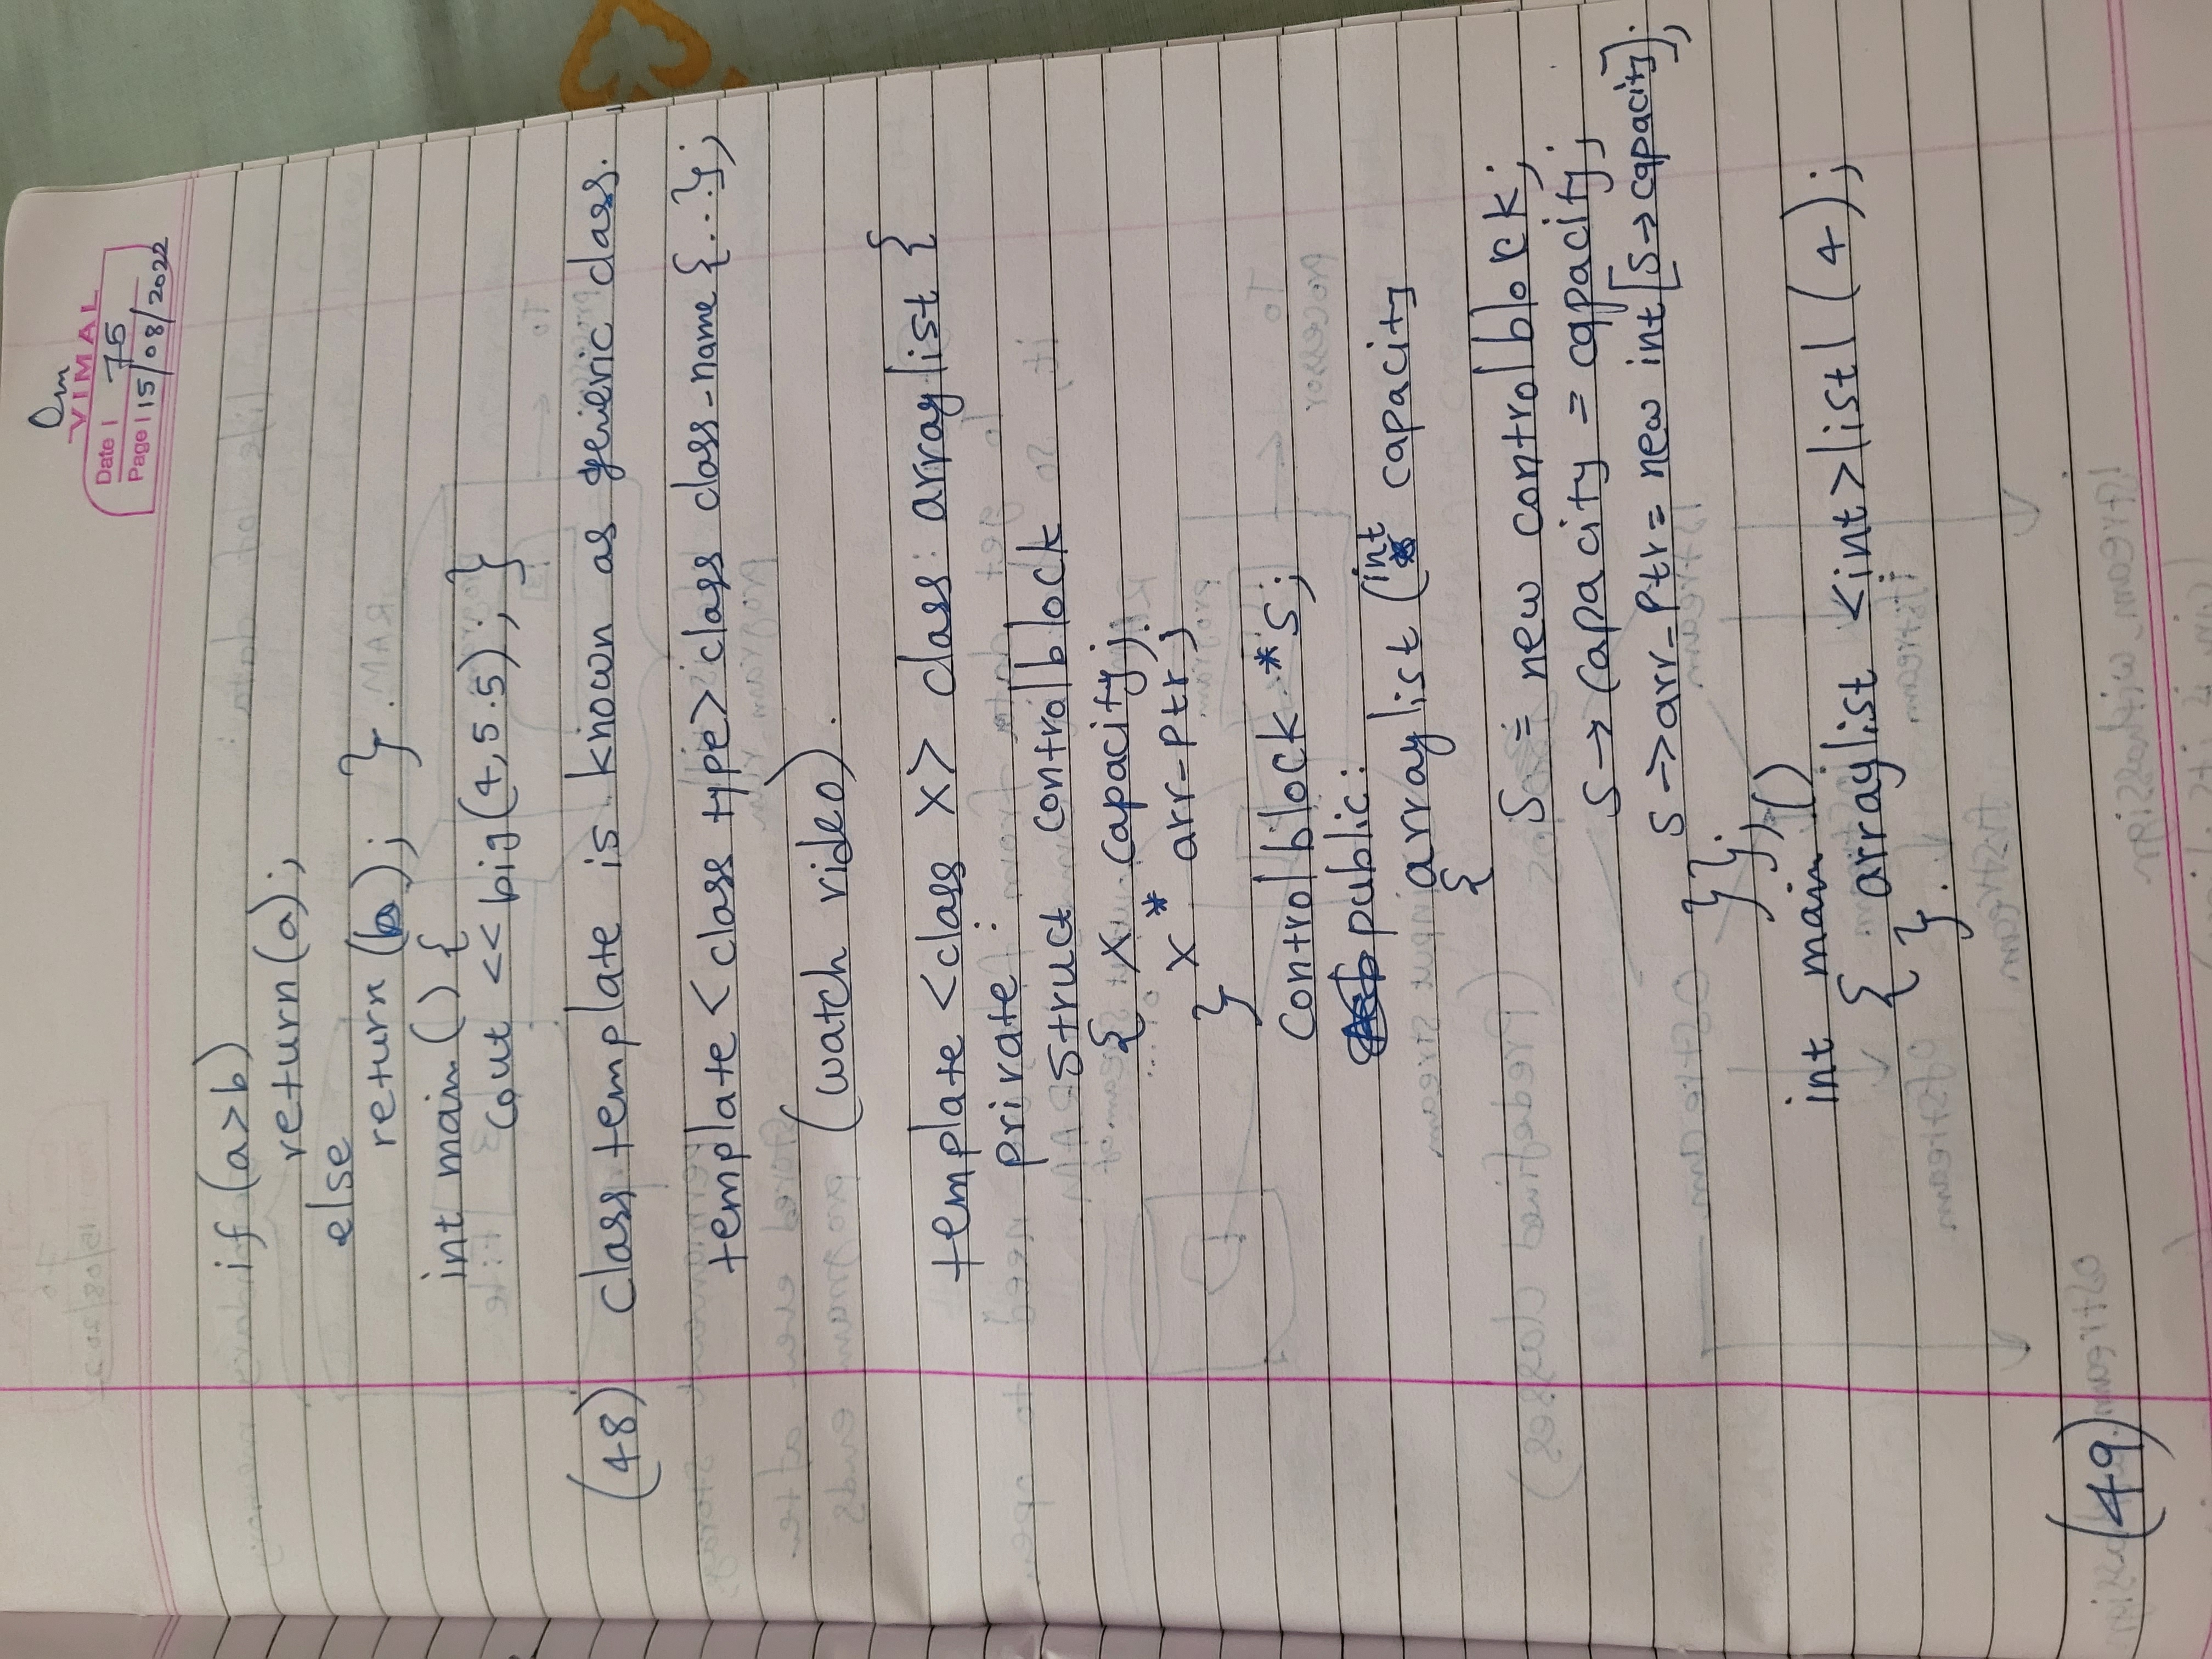 Om
VIMAL
Date | 75
Page | 15/08/2022
if (a>b)
return(a);
else
return (b); }.
int main() {
cout << big(4,5.5); }
(48) class template is known as generic class.
template <class type> class class-name {...};
(watch video).
template <class X> class arraylist {
private :
struct controlblock
{ X capacity;
X * arr-ptr;
}
controlblock *s;
public:
arraylist (int capacity
{
S = new controlblock;
S → capacity = capacity;
S → arr-ptr = new int[S→capacity];
}};
int main()
{ arraylist <int>list1 (4);
}.
(49)